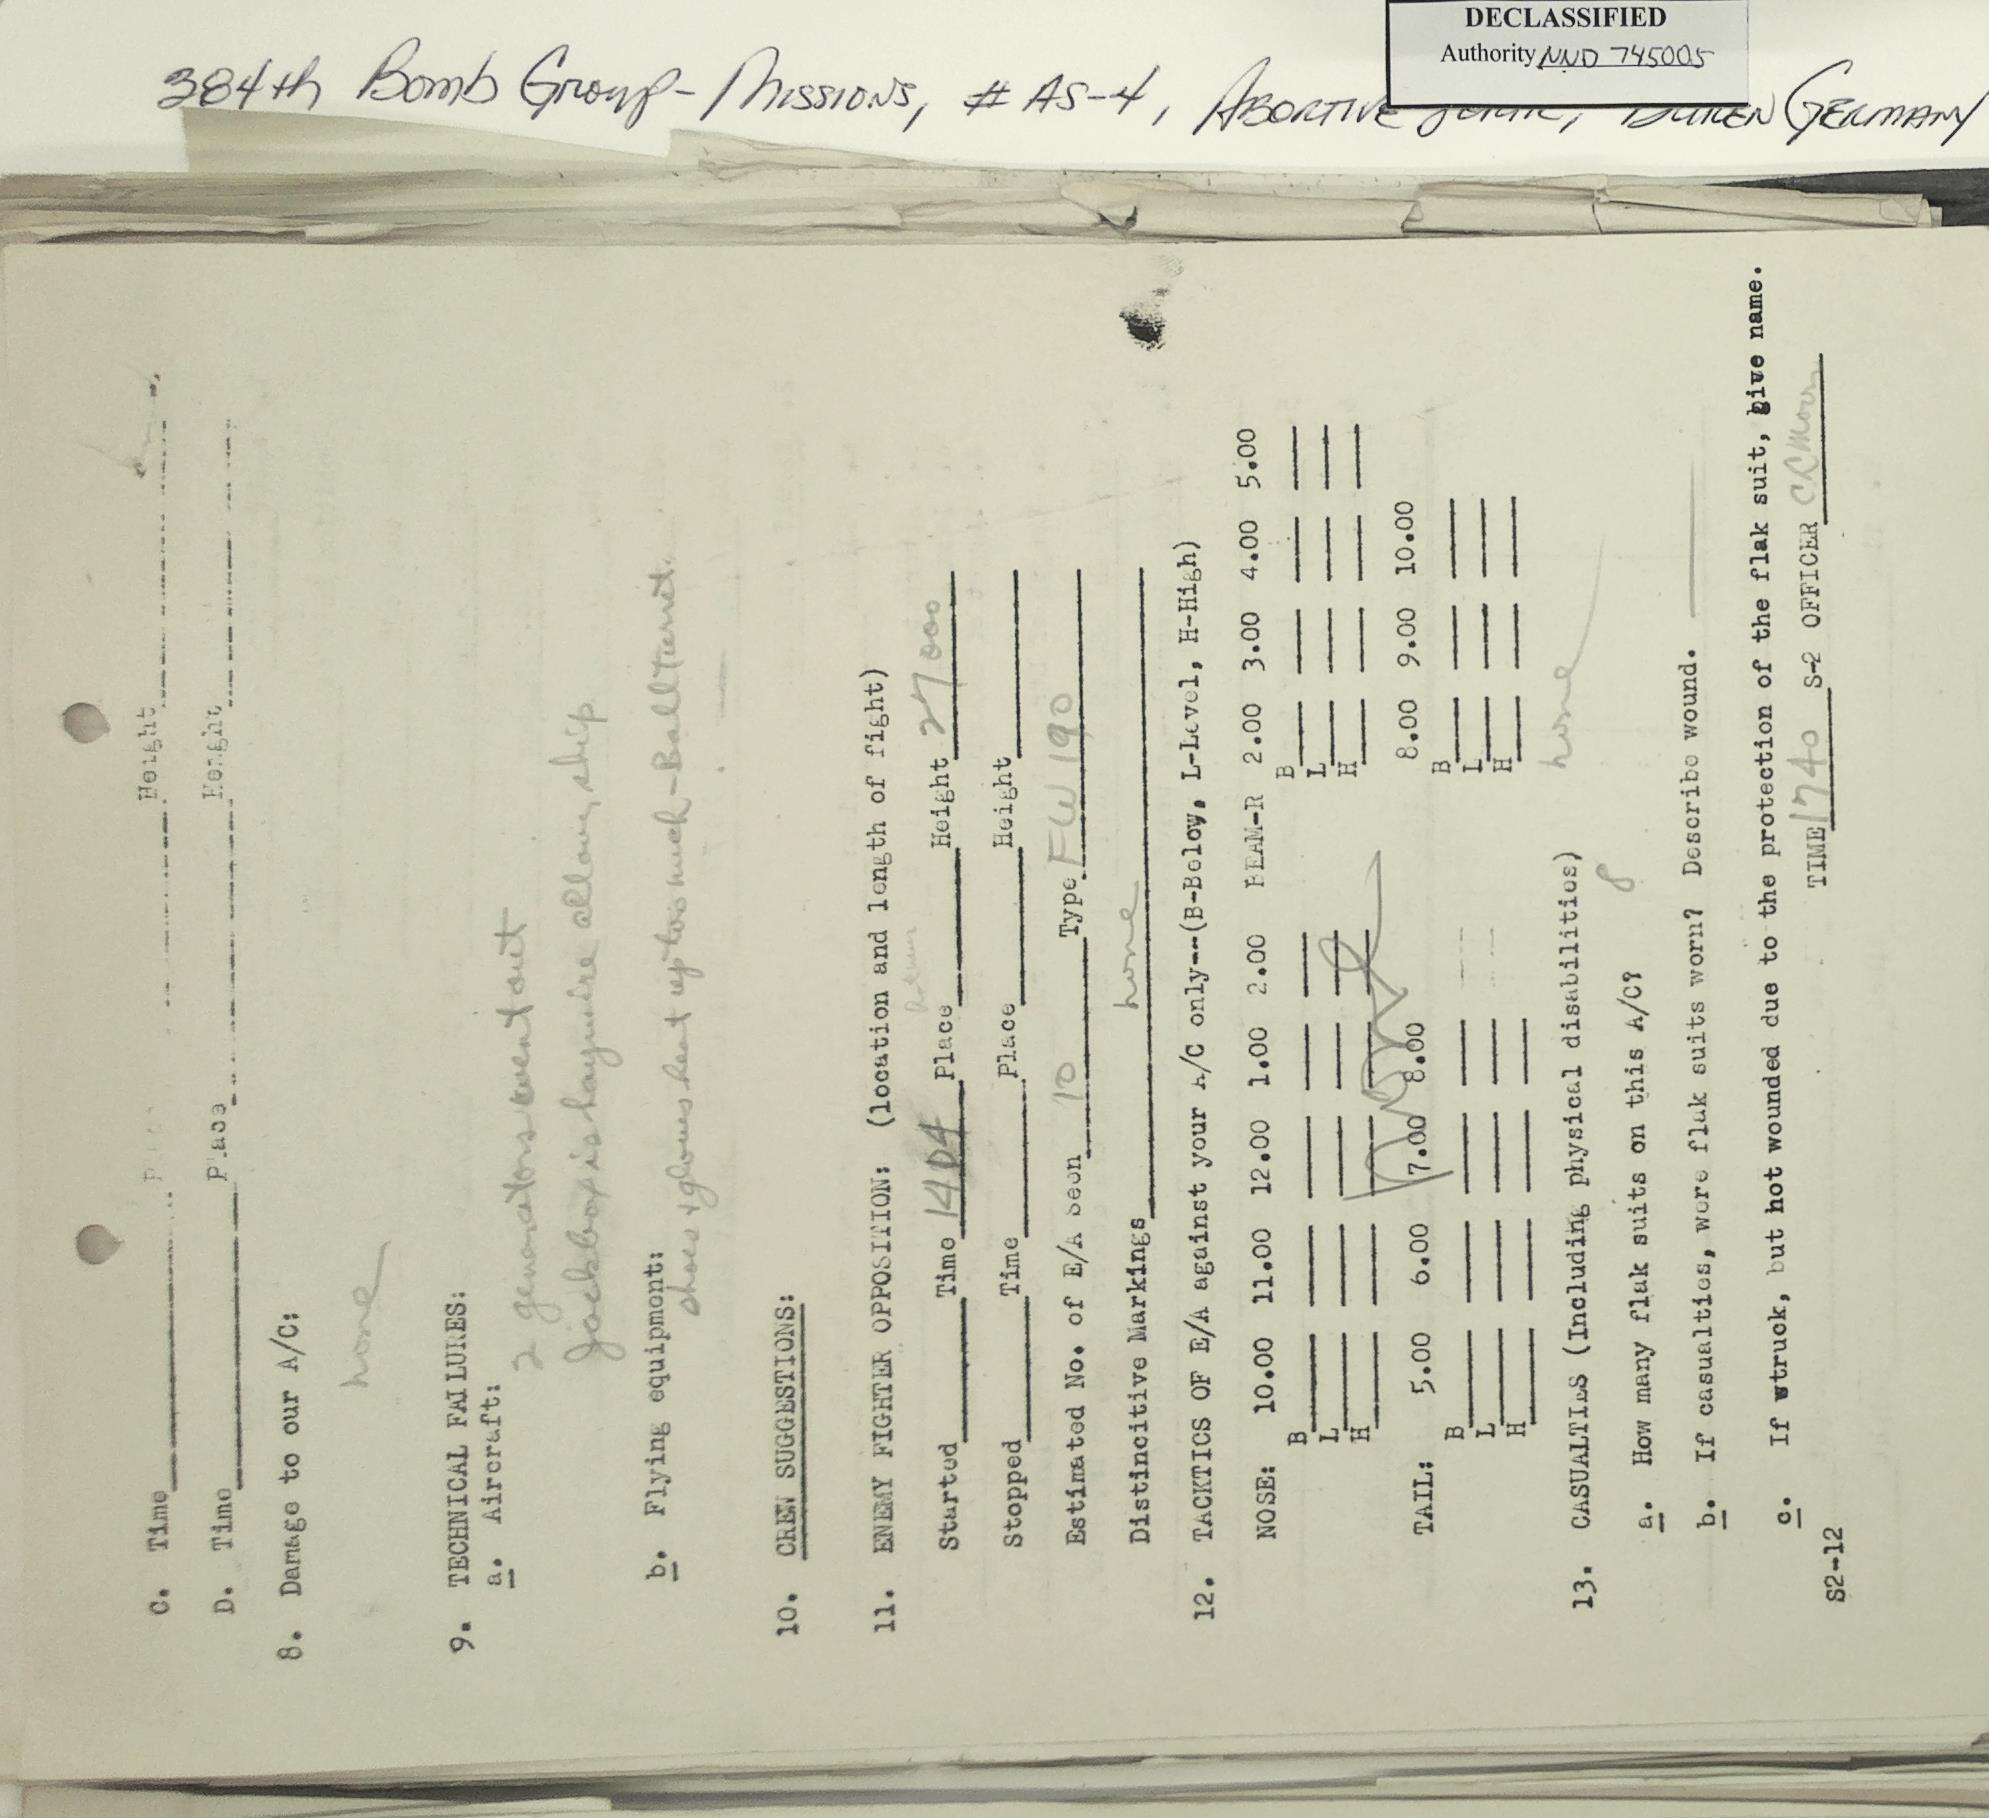 DECLASSIFIED
Authority NND 745005
384th Bomb Group - Missions, # AS-4, Abortive Germany
C. Time Height
D. Time Place Henght
8. Damage to our A/C:
none
9. TECHNICAL FAILURES:
a. Aircraft:
2 generators went out
Jackbox is haywire all over ship
b. Flying equipment:
shoes & gloves heat up too much - Ball turret.
10. CREW SUGGESTIONS:
11. ENEMY FIGHTER OPPOSITION: (location and length of fight)
Started Time 1404 Place Height 27000
Stopped Time Place Height
Estimated No. of E/A seen 10 Type FW 190
Distincitive Markings none
12. TACKTICS OF E/A against your A/C only--(B-Below, L-Level, H-High)
NOSE: 10.00 11.00 12.00 1.00 2.00 BEAM-R 2.00 3.00 4.00 5.00
B B
L L
H H
none
TAIL: 5.00 6.00 7.00 8.00 8.00 9.00 10.00
B B
L L
H H
13. CASUALTIES (Including physical disabilities) none
a. How many flak suits on this A/C? 8
b. If casualties, were flak suits worn? Describe wound.
c. If struck, but not wounded due to the protection of the flak suit, give name.
TIME 1740 S-2 OFFICER
S2-12